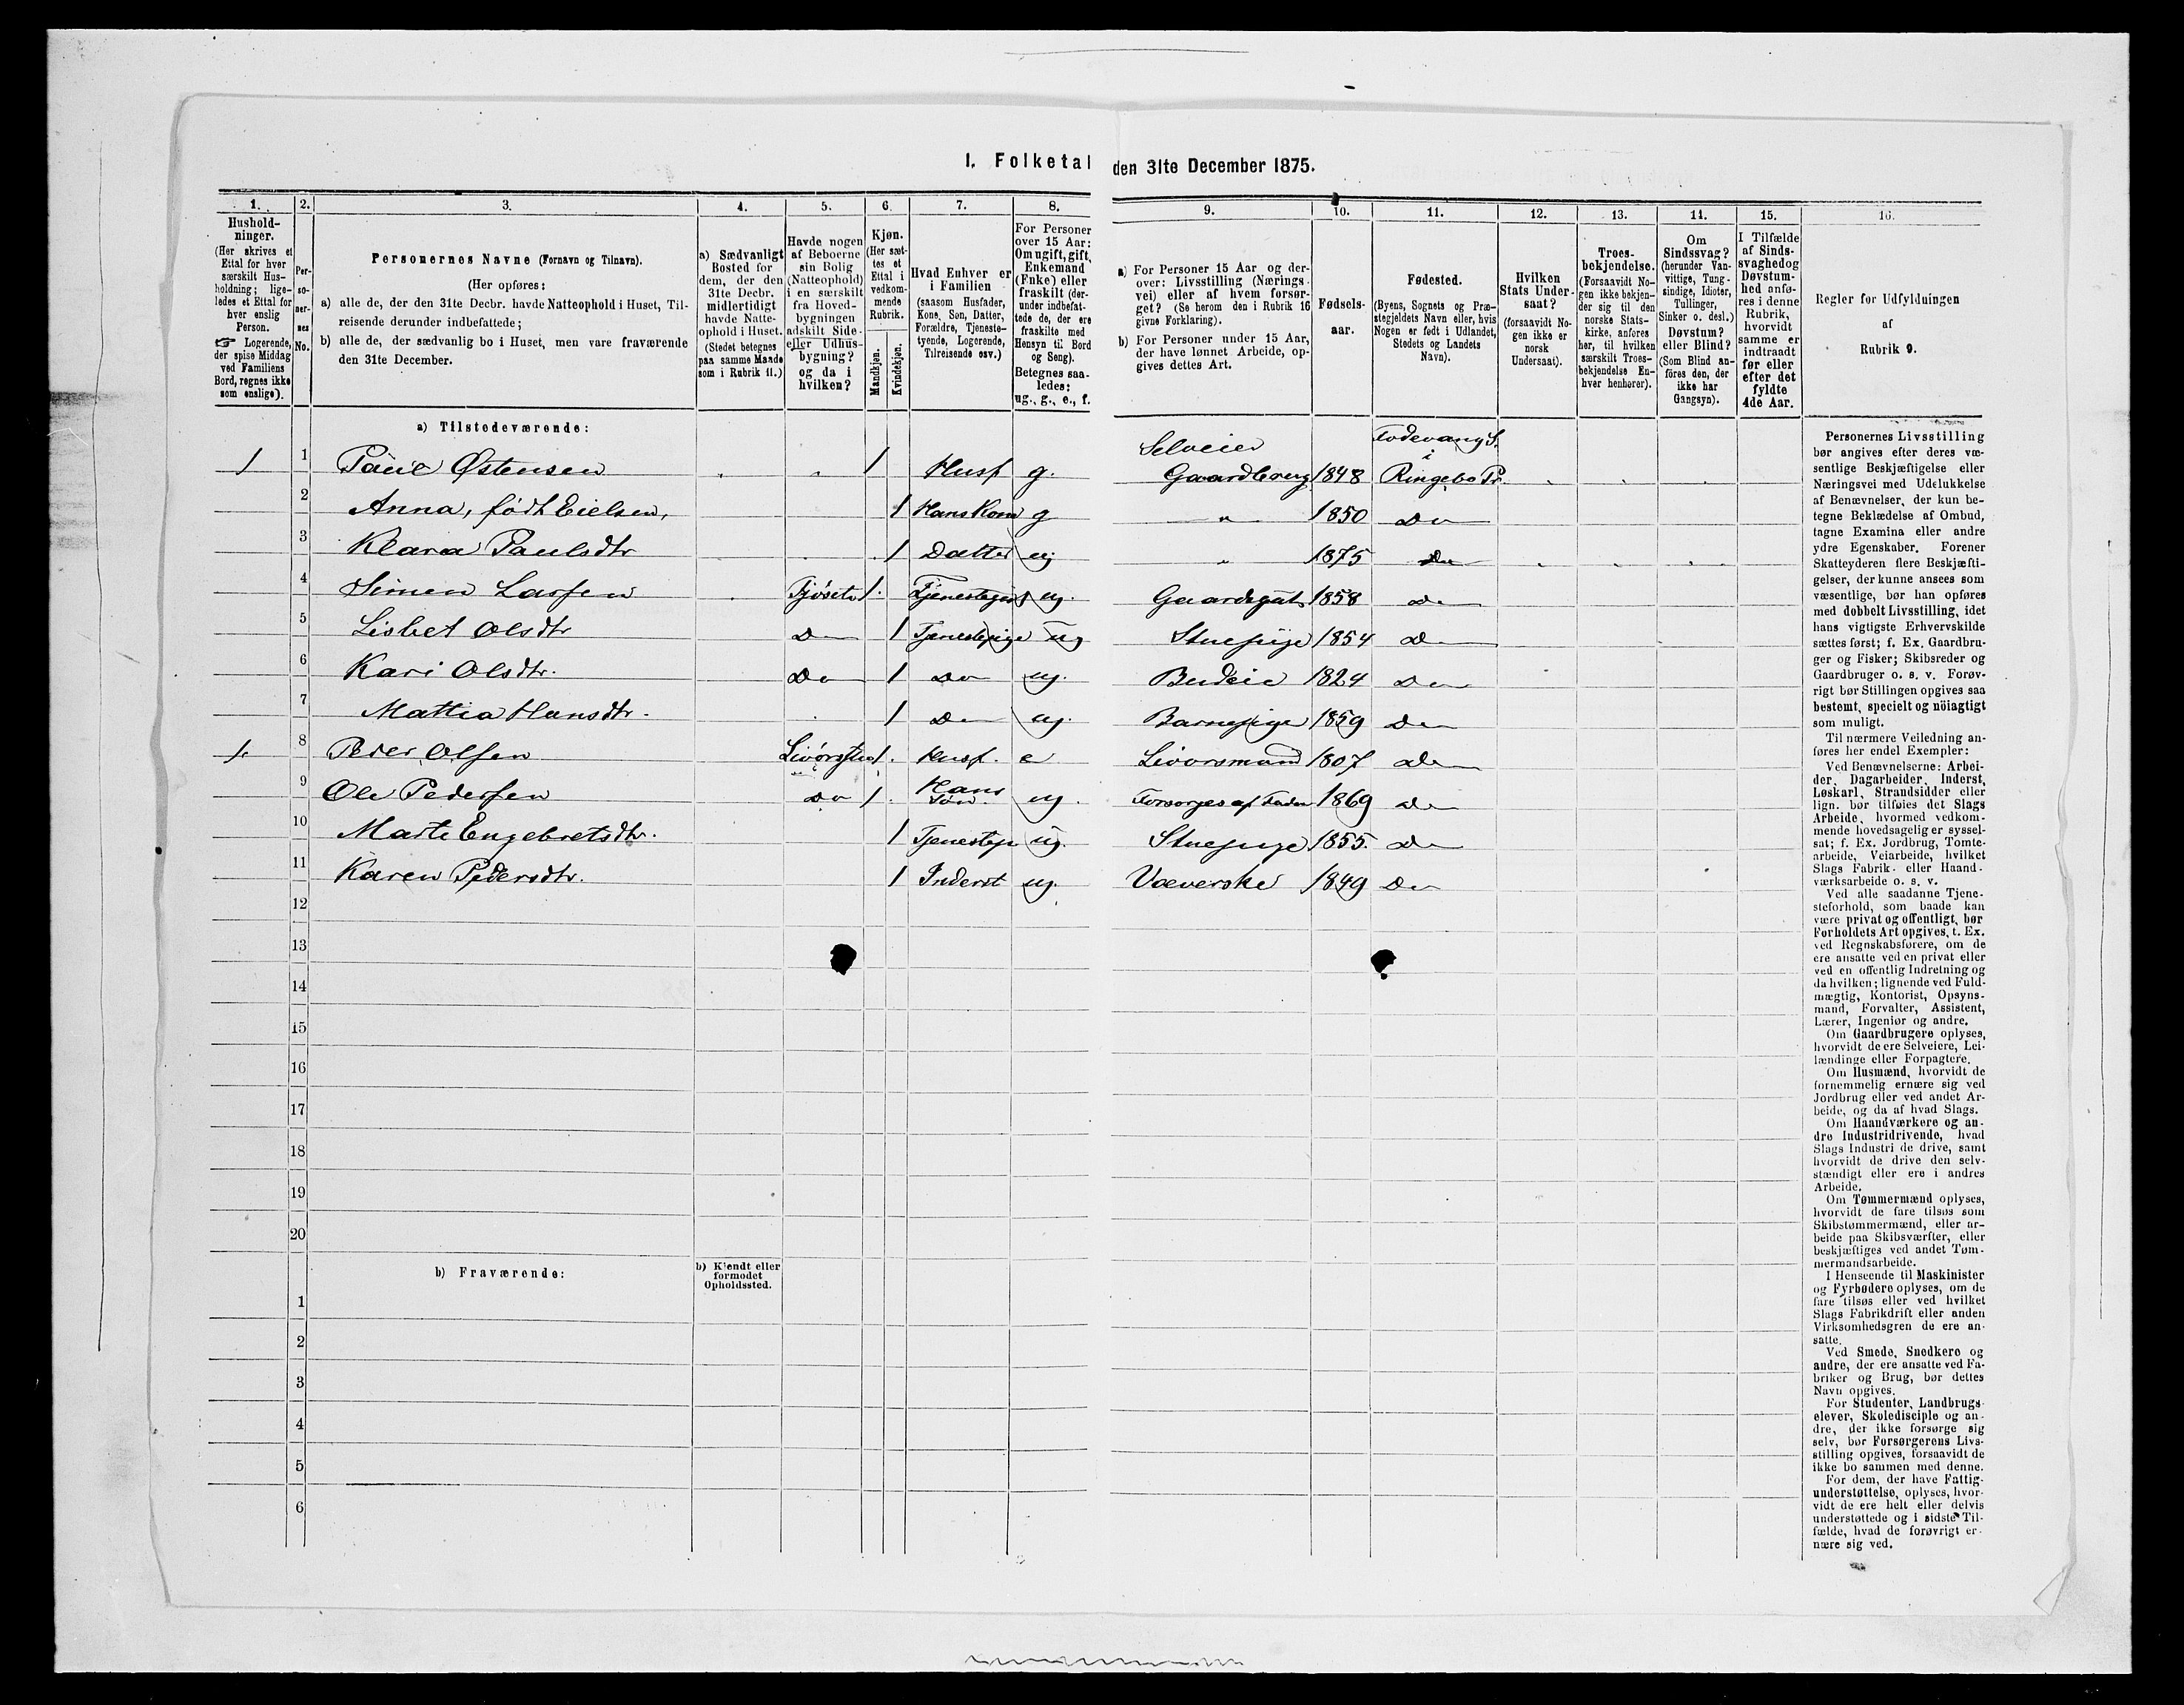 I. Folketal den 31te December 1875.
1. 2. 3. 4. 5. 6. 7. 8. 9. 10. 11. 12. 13. 14. 15. 16.
Hushold-
ninger.
(Her skrives et
Ettal for hver
særskilt Hus-
holdning; lige-
ledes et Ettal for
hver enslig
Person.
☞ Logerende,
der spise Middag
ved Familiens
Bord, regnes ikke
som enslige).
Per-
so-
ner-
nes
No.
Personernes Navne (Fornavn og Tilnavn).
(Her opføres:
a) alle de, der den 31te Decbr. havde Natteophold i Huset, Til-
reisende derunder indbefattede;
b) alle de, der sædvanlig bo i Huset, men vare fraværende
den 31te December.
a) Sædvanligt
Bosted for
dem, der den
31te Decbr.
midlertidigt
havde Natte-
ophold i Huset.
(Stedet betegnes
paa samme Maade
som i Rubrik 11.)
Havde nogen
af Beboerne
sin Bolig
(Natteophold)
i en særskilt
fra Hoved-
bygningen
adskilt Side-
eller Udhus-
bygning?
og da i
hvilken?
Kjøn.
(Her sæt-
tes et
Ettal i
vedkom-
mende
Rubrik.
Mandkjøn.
Kvindekjøn.
Hvad Enhver er
i Familien
(saasom Husfader,
Kone, Søn, Datter,
Forældre, Tjeneste-
tyende, Logerende,
Tilreisende osv.)
For Personer
over 15 Aar:
Om ugift, gift,
Enkemand
(Enke) eller
fraskilt (der-
under indbefat-
tede de, der ere
fraskilte med
Hensyn til Bord
og Seng).
Betegnes saa-
ledes:
ug., g., e., f.
a) For Personer 15 Aar og der-
over: Livsstilling (Nærings-
vei) eller af hvem forsør-
get? (Se herom den i Rubrik 16
givne Forklaring).
b) For Personer under 15 Aar,
der have lønnet Arbeide, op-
gives dettes Art.
Fødsels-
aar.
Fødested.
(Byens, Sognets og Præ-
stegjeldets Navn eller, hvis
Nogen er født i Udlandet,
Stedets og Landets
Navn).
Hvilken
Stats Under-
saat?
(forsaavidt No-
gen ikke er
norsk
Undersaat).
Troes-
bekjendelse.
(Forsaavidt No-
gen ikke bekjen-
der sig til den
norske Stats-
kirke, anføres
her, til hvilken
særskilt Troes-
bekjendelse En-
hver henhører).
Om
Sindssvag?
(herunder Van-
vittige, Tung-
sindige, Idioter,
Tullinger,
Sinker o. desl.)
Døvstum?
eller Blind?
(Som Blind an-
föres den, der
ikke har
Gangsyn).
I Tilfælde
af Sinds-
svaghed og
Døvstum-
hed anfø-
res i denne
Rubrik,
hvorvidt
samme er
indtraadt
før eller
efter det
fyldte
4de Aar.
Regler for Udfyldningen
af
Rubrik 9.
a) Tilstedeværende:
1 1 Paul Østensen 1 Husf g. Selveier Gaardbrug 1848 Fodevang S. i Ringebo Pr.
2 Anna, født Eielsen, 1 Hans Kone g " 1850 Do
3 Klara Paulsdtr 1 Datter ug " 1875 Do
4 Simen Larsen 1 ug. 1858 Do
5 Lisbet Olsdtr Do 1 Tjenestepige ug Stuepige 1854 Do
6 Kari Olsdtr. Do 1 Do ug. Budeie 1824 Do
7 Mattia Hansdtr. 1 Do ug. Barnepige 1859 Do
1. 8 Peder Olsen 1. Husf. e Livorsmand 1807 Do
9 Ole Pedersen Do 1. Hans Søn. ug. Forsorges af Fader 1869 Do
10 Marte Engebretsdtr. 1 Tjenestep ug. Stuepige 1855. Do
11 Karen Pedersdtr. 1 Inderst ug. Væverske 1849 Do
12
13
14
15
16
17
18
19
20
b) Fraværende:
b) Kjendt eller
formodet
Opholdssted.
1
2
3
4
5
6
Personernes Livsstilling
bør angives efter deres væ-
sentlige Beskjæftigelse eller
Næringsvei med Udelukkelse
af Benævnelser, der kun be-
tegne Beklædelse af Ombud,
tagne Examina eller andre
ydre Egenskaber. Forener
Skatteyderen flere Beskjæfti-
gelser, der kunne ansees som
væsentlige, bør han opføres
med dobbelt Livsstilling, idet
hans vigtigste Erhvervskilde
sættes først; f. Ex. Gaardbru-
ger og Fisker; Skibsreder og
Gaardbruger o. s. v. Forøv-
rigt bør Stillingen opgives saa
bestemt, specielt og nöiagtigt
som muligt.
Til nærmere Veiledning an-
føres her endel Exempler:
Ved Benævnelserne: Arbei-
der, Dagarbeider, Inderst,
Løskarl, Strandsidder eller
lign. bør tilføies det Slags
Arbeide, hvormed vedkom-
mende hovedsagelig er syssel-
sat; f. Ex. Jordbrug, Tomte-
arbeide, Veiarbeide, hvilket
Slags Fabrik- eller Haand-
værksarbeide o. s. v.
Ved alle saadanne Tjene-
steforhold, som baade kan
være privat og offentligt, bør
Forholdets Art opgives, t. Ex.
ved Regnskabsførere, om de
ere ansatte ved en privat eller
ved en offentlig Indretning og
da hvilken; lignende ved Fuld-
mægtig, Kontorist, Opsyns-
mand, Forvalter, Assistent,
Lærer, Ingeniør og andre.
Om Gaardbrugere oplyses,
hvorvidt de ere Selveiere, Lei-
lændinge eller Forpagtere.
Om Husmænd, hvorvidt de
fornemmelig ernære sig ved
Jordbrug eller ved andet Ar-
beide, og da af hvad Slags.
Om Haandværkere og an-
dre Industridrivende, hvad
Slags Industri de drive, samt
hvorvidt de drive den selv-
stændigt eller ere i andres
Arbeide.
Om Tømmermænd oplyses,
hvorvidt de fare tilsøs som
Skibstømmermænd, eller ar-
beide paa Skibsværfter, eller
beskjæftiges ved andet Tøm-
mermandsarbeide.
I Henseende til Maskinister
og Fyrbødere oplyses, om de
fare tilsøs eller ved hvilket
Slags Fabrikdrift eller anden
Virksomhedsgren de ere an-
satte.
Ved Smede, Snedkere og
andre, der ere ansatte ved Fa-
briker og Brug, bør dettes
Navn opgives.
For Studenter, Landbrugs-
elever, Skoledisciple og an-
dre, der ikke forsørge sig
selv, bør Forsørgerens Livs-
stilling opgives, forsaavidt de
ikke bo sammen med denne.
For dem, der have Fattig-
understøttelse, oplyses, hvor-
vidt de ere helt eller delvis
understøttede og i sidste Til-
fælde, hvad de forøvrigt er-
nære sig ved.